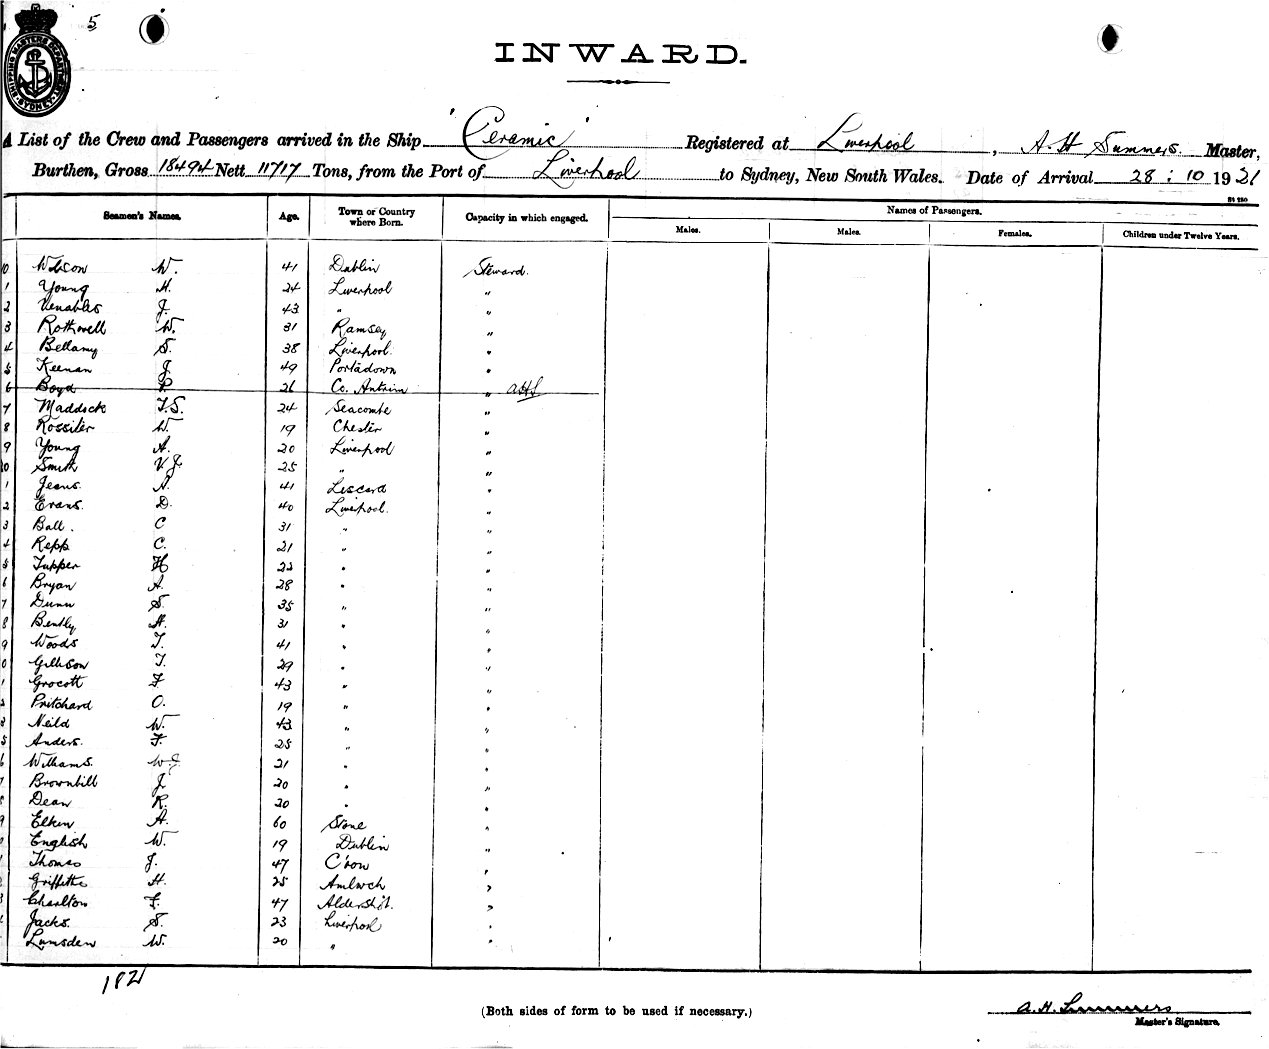 5
SHIPPING MASTERS DEPARTMENT SYDNEY
INWARD.
A List of the Crew and Passengers arrived in the Ship "Ceramic" Registered at Liverpool, A. H Summers. Master,
Burthen, Gross 18494 Nett 11717 Tons, from the Port of Liverpool to Sydney, New South Wales. Date of Arrival 28 : 10 1921
Seamen's Names. Age. Town or Country where Born. Capacity in which engaged. Names of Passengers.
Males. Males. Females. Children under Twelve Years.
0 Wilson W. 41 Dublin Steward.
1 Young H. 24 Liverpool "
2 Venables J. 43 " "
3 Rothwell W. 31 Ramsey "
4 Bellamy S. 38 Liverpool. "
5 Keenan J. 49 Portadown "
6 Boyd P 26 Co. Antrim " AHS
7 Maddock T.S. 24 Seacombe "
8 Rossiter W. 19 Chester "
9 Young A. 20 Liverpool "
0 Smith V J 25 " "
1 Jeans. A. 41 Liscard "
2 Evans. D. 40 Liverpool. "
3 Ball. C 31 " "
4 Repp C. 21 " "
5 Tupper H 22 " "
6 Bryan A. 28 " "
7 Dunn S. 35 " "
8 Bently H. 31 " "
9 Woods T. 41 " "
0 Gillison T. 29 " "
1 Grocott F 43 " "
2 Pritchard O. 19 " "
3 Neild W. 43 " "
5 Anders. F. 25 " "
6 Williams. W.J 21 " "
7 Brownbill J. 20 " "
8 Dean R. 20 " "
9 Elkin A. 60 Stone "
English W. 19 Dublin "
Thomas J. 47 "
Griffiths H. 25 Amlwch "
Charlton F. 47 Aldershot. "
Jacks. S. 23 Liverpool "
Lumsden W. 20 " "
182
(Both sides of form to be used if necessary.)
A. H. Summers
Master's Signature.